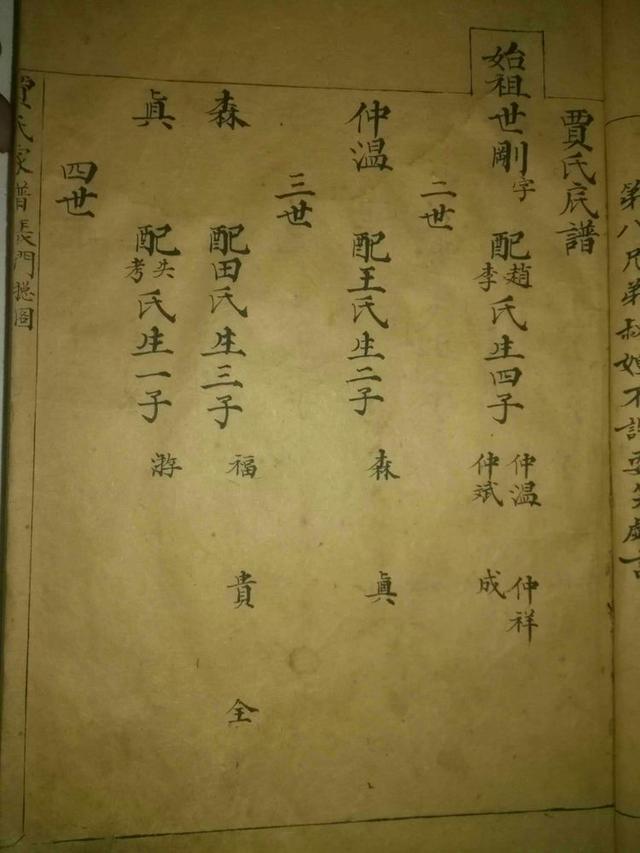 第八兄弟叔嫂不許
賈氏底譜
始祖世剛字 配趙李氏生四子 仲温 仲祥 仲斌 成
二世
仲温 配王氏生二子 森 真
三世
森 配田氏生三子 福 貴 全
真 配失考氏生一子 游
四世
賈氏家譜長門總圖